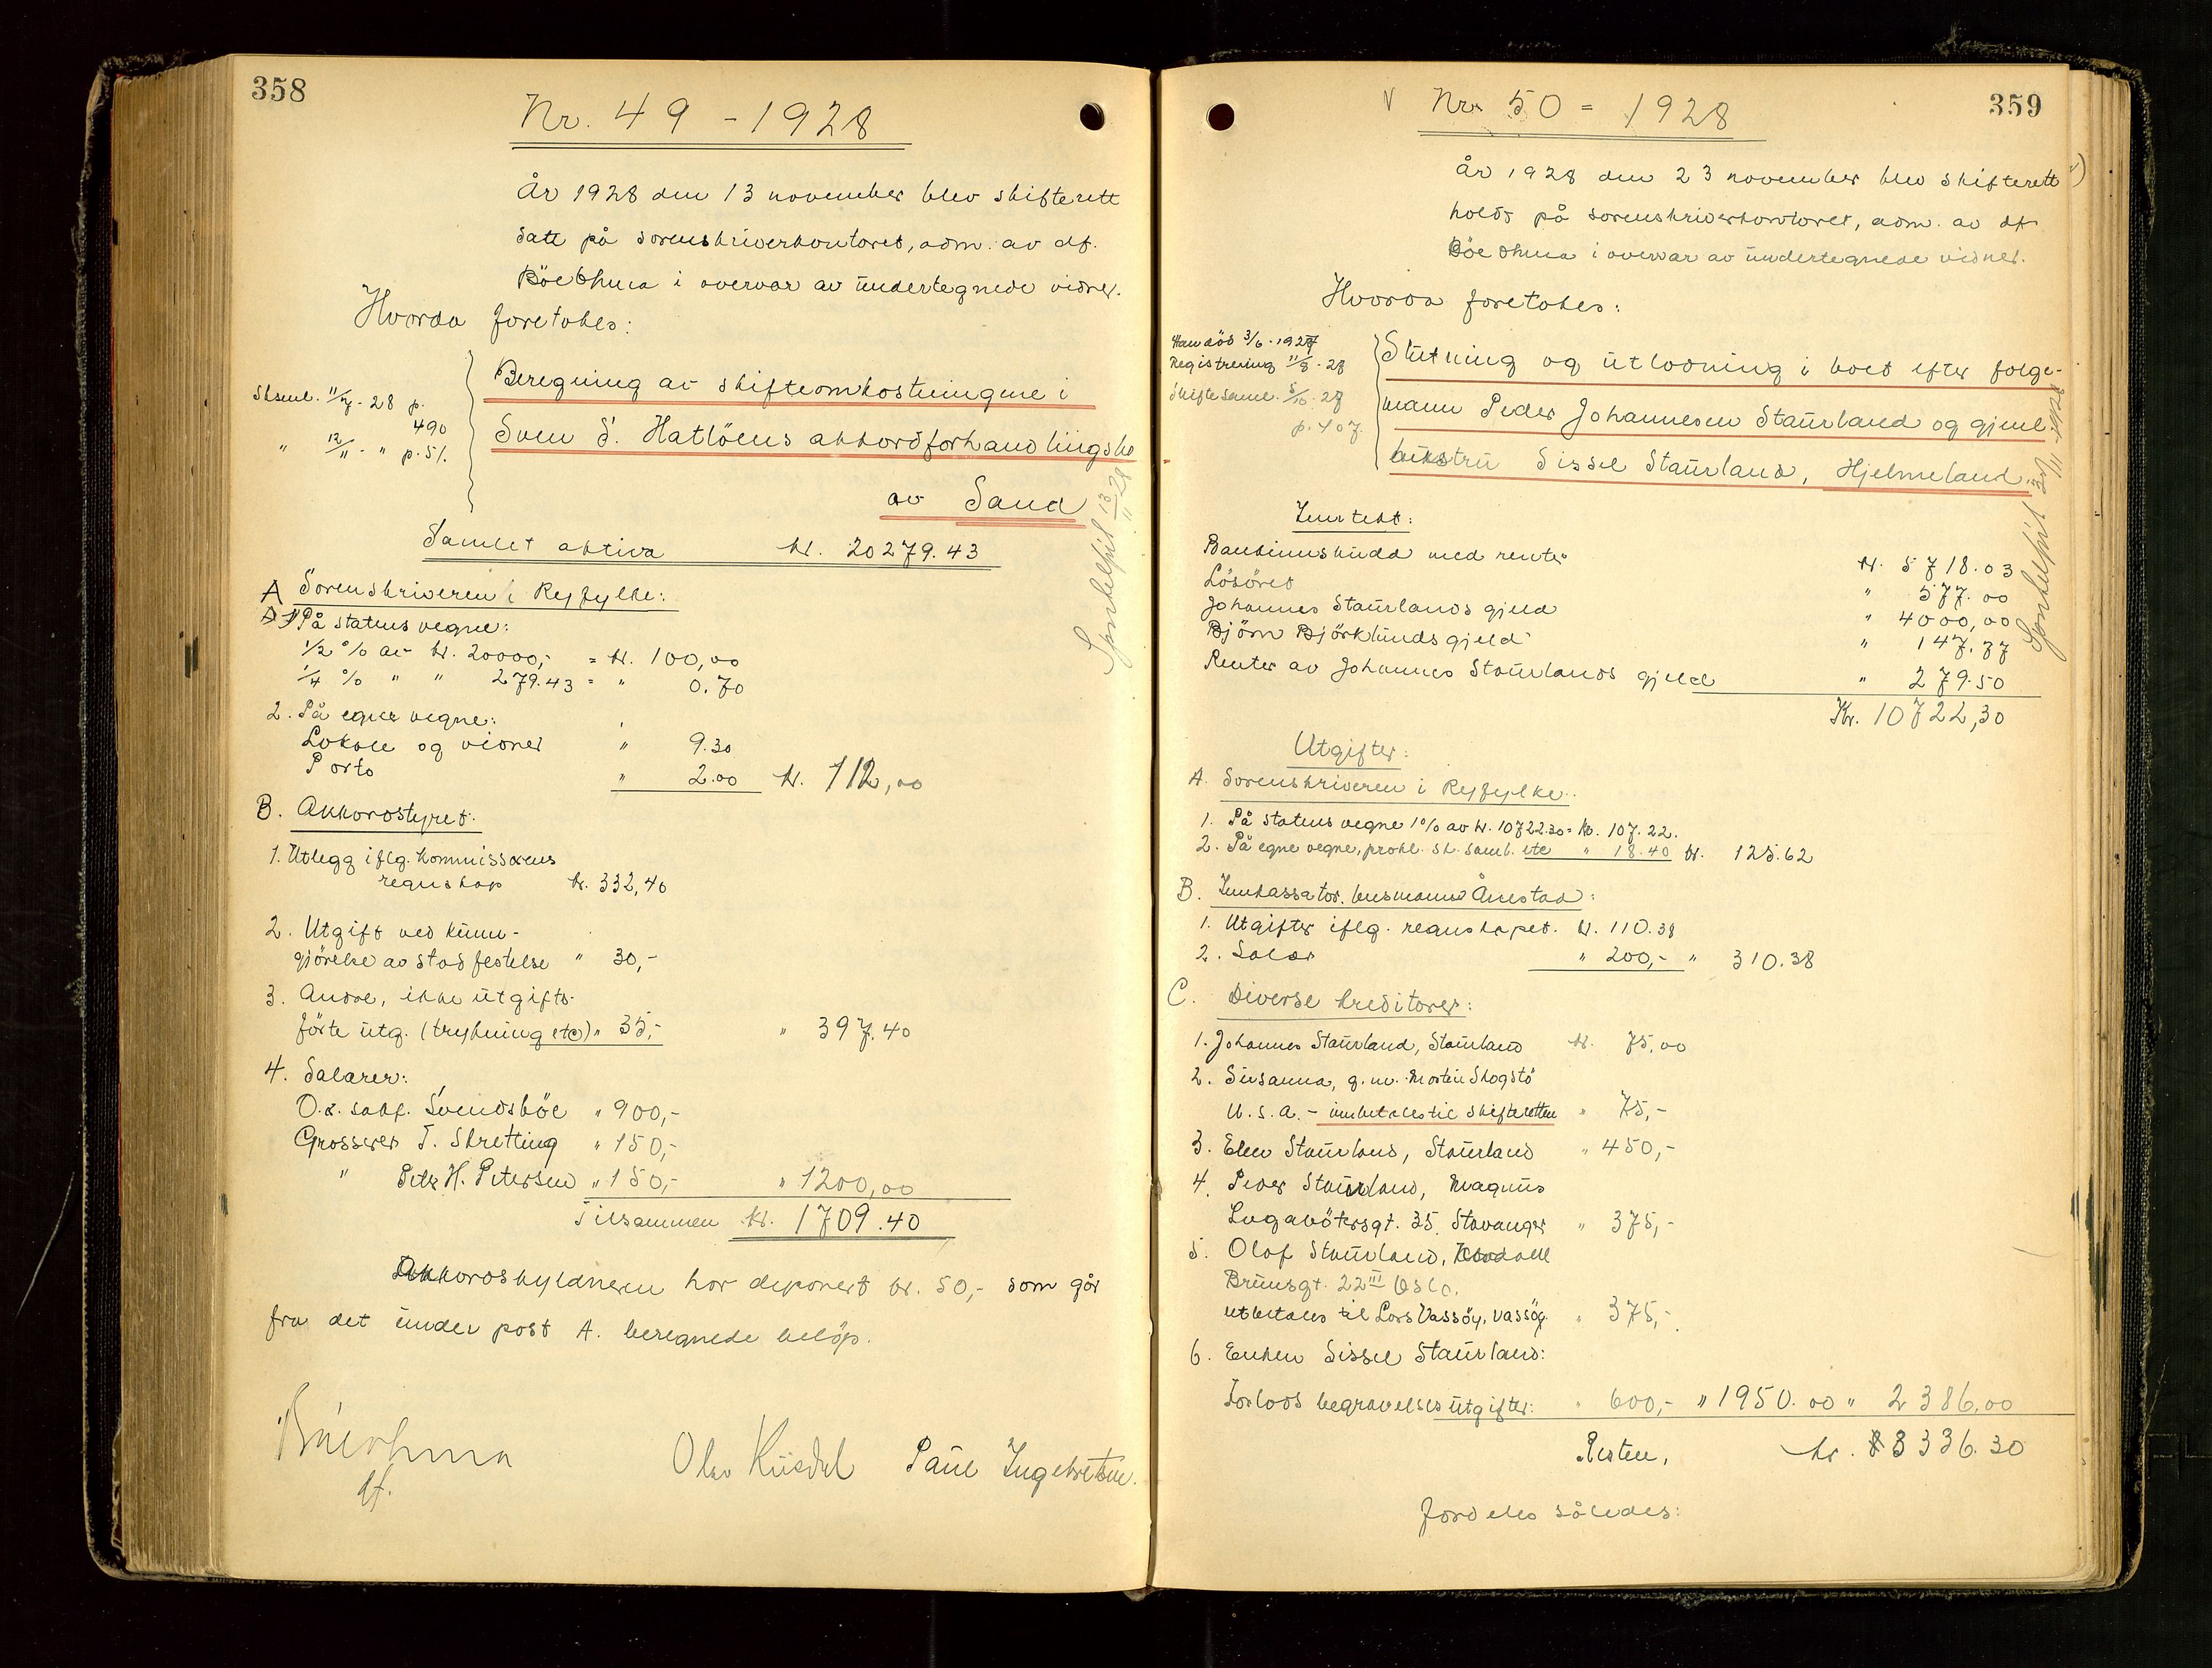 358
Nr. 49 - 1928
År 1928 den 13 november blev skifterett
satt på sorenskriverkontoret, adm. av df.
Böe Thura i overvær av undertegnede vidner.
Hvorda foretokes:
Sksml. 11/7 - 28 p. 490
" 12/11 - " p. 51.
Beregning av skifteomkostningene i
Sven S. Hatlöens akkordforhandlingsbo
av Sand
Samlet aktiva kr. 20279.43
A Sorenskriveren i Ryfylke:
1 På statens vegne:
1/2 % av kr. 20000,- = kr. 100,00
1/4 % " " 279.43 = " 0.70
2. På egne vegne:
Lokale og vidner " 9.30
Porto " 2.00 kr. 112,00
B. Akkordstyret.
1. Utlegg iflg. kommissærens
regnskap kr. 332,40
2. Utgift ved kunn-
gjörelse av stadfestelse " 30,-
3. Andre, ikke utgifts-
förte utg. (trykning etc) " 35,- " 397.40
4. Salærer:
O.r. sakf. Svendsböe " 900,-
Grosserer T. Skretting " 150,-
" Petr. H. Petersen " 150,- " 1200,00
Tilsammen kr. 1709.40
Akkordskyldneren har deponert kr. 50,- som går
fra det under post A. beregnede belöp.
df.
Olav Paul Ingebretsen.
Sportelpil 13/11 28
359
Nr. 50 = 1928
År 1928 den 23 november blev skifterett
holdt på sorenskriverkontoret, adm. av df
Böe Thura i overvær av undertegnede vidner.
Hvorda foretokes:
Han död 3/6 - 1927
Registrering 11/8 - 28
Skiftesaml. 5/10 - 28
p. 407.
Slutning og utlodning i boet efter folge-
mann Peder Johannesen Staurland og gjenl.
enkefru Sissel Staurland, Hjelmeland.
Inntekt:
Bankinnskudd med renter kr. 5718.03
Lösöret " 577.00
Johannes Staurlands gjeld " 4000,00
Björn Björklunds gjeld " 147.77
Renter av Johannes Staurlands gjeld " 279.50
Kr. 10722,30
Utgifter:
A. Sorenskriveren i Ryfylke.
1. På statens vegne 1% av kr. 10722.30 = kr. 107.22.
2. På egne vegne, prokl. sk. saml. etc " 18.40 kr. 125.62
B. Innkassator. lensmann Ånestad:
1. Utgifter iflg. regnskapet. kr. 110.38
2. Salær " 200,- " 310.38
C. Diverse kreditorer:
1. Johannes Staurland, Staurland kr. 75,00
2. Susanna, g.m. Morten Skogstö
U.S.A. - innbetales til skifteretten " 75,-
3. Elen Staurland, Staurland " 450,-
4. Peder Staurland, Magnus
Lagabötersgt. 35. Stavanger " 375,-
5. Olaf Staurland,
Brunsgt. 22 III Oslo.
utbetales til Lars Vassöy, Vassöy. " 375,-
6. Enken Sissel Staurland:
Forlods begravelsesutgifter: " 600,- " 1950.00 " 2386,00
Resten, kr. 8336.30
fordeles således:
Sportelpil 30/11 1928